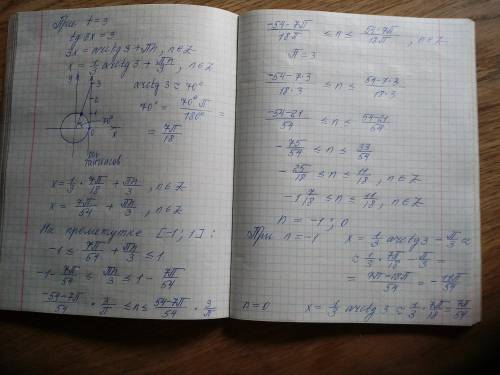 При t = 3
tg 3x = 3
3x = arctg 3 + πn, n∈Z
x = 1/3 arctg 3 + πn/3, n∈Z
arctg 3 ≈ 70°
70° = 70° π/180° =
= 7π/18
3
2
1
70°
0
x
ось
тангенсов
x = 1/3 · 7π/18 + πn/3, n∈Z
x = 7π/54 + πn/3, n∈Z
На промежутке [-1; 1]:
-1 ≤ 7π/54 + πn/3 ≤ 1
-1 - 7π/54 ≤ πn/3 ≤ 1 - 7π/54
(-54-7π)/54 · 3/π ≤ n ≤ (54-7π)/54 · 3/π
(-54-7π)/18π ≤ n ≤ (54-7π)/18π, n∈Z
π = 3
(-54-7·3)/(18·3) ≤ n ≤ (54-7·3)/(18·3)
(-54-21)/54 ≤ n ≤ (54-21)/54
-75/54 ≤ n ≤ 33/54
-25/18 ≤ n ≤ 11/18, n∈Z
-1 7/18 ≤ n ≤ 11/18, n∈Z
n = -1; 0
При n = -1 x = 1/3 arctg 3 - π/3 ≈
≈ 1/3 · 7π/18 - π/3 =
= (7π-18π)/54 = -11π/54
n = 0 x = 1/3 arctg 3 ≈ 1/3 · 7π/18 = 7π/54